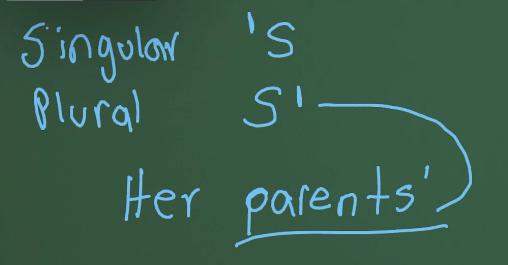 Singular 's
Plural s'
Her parents'